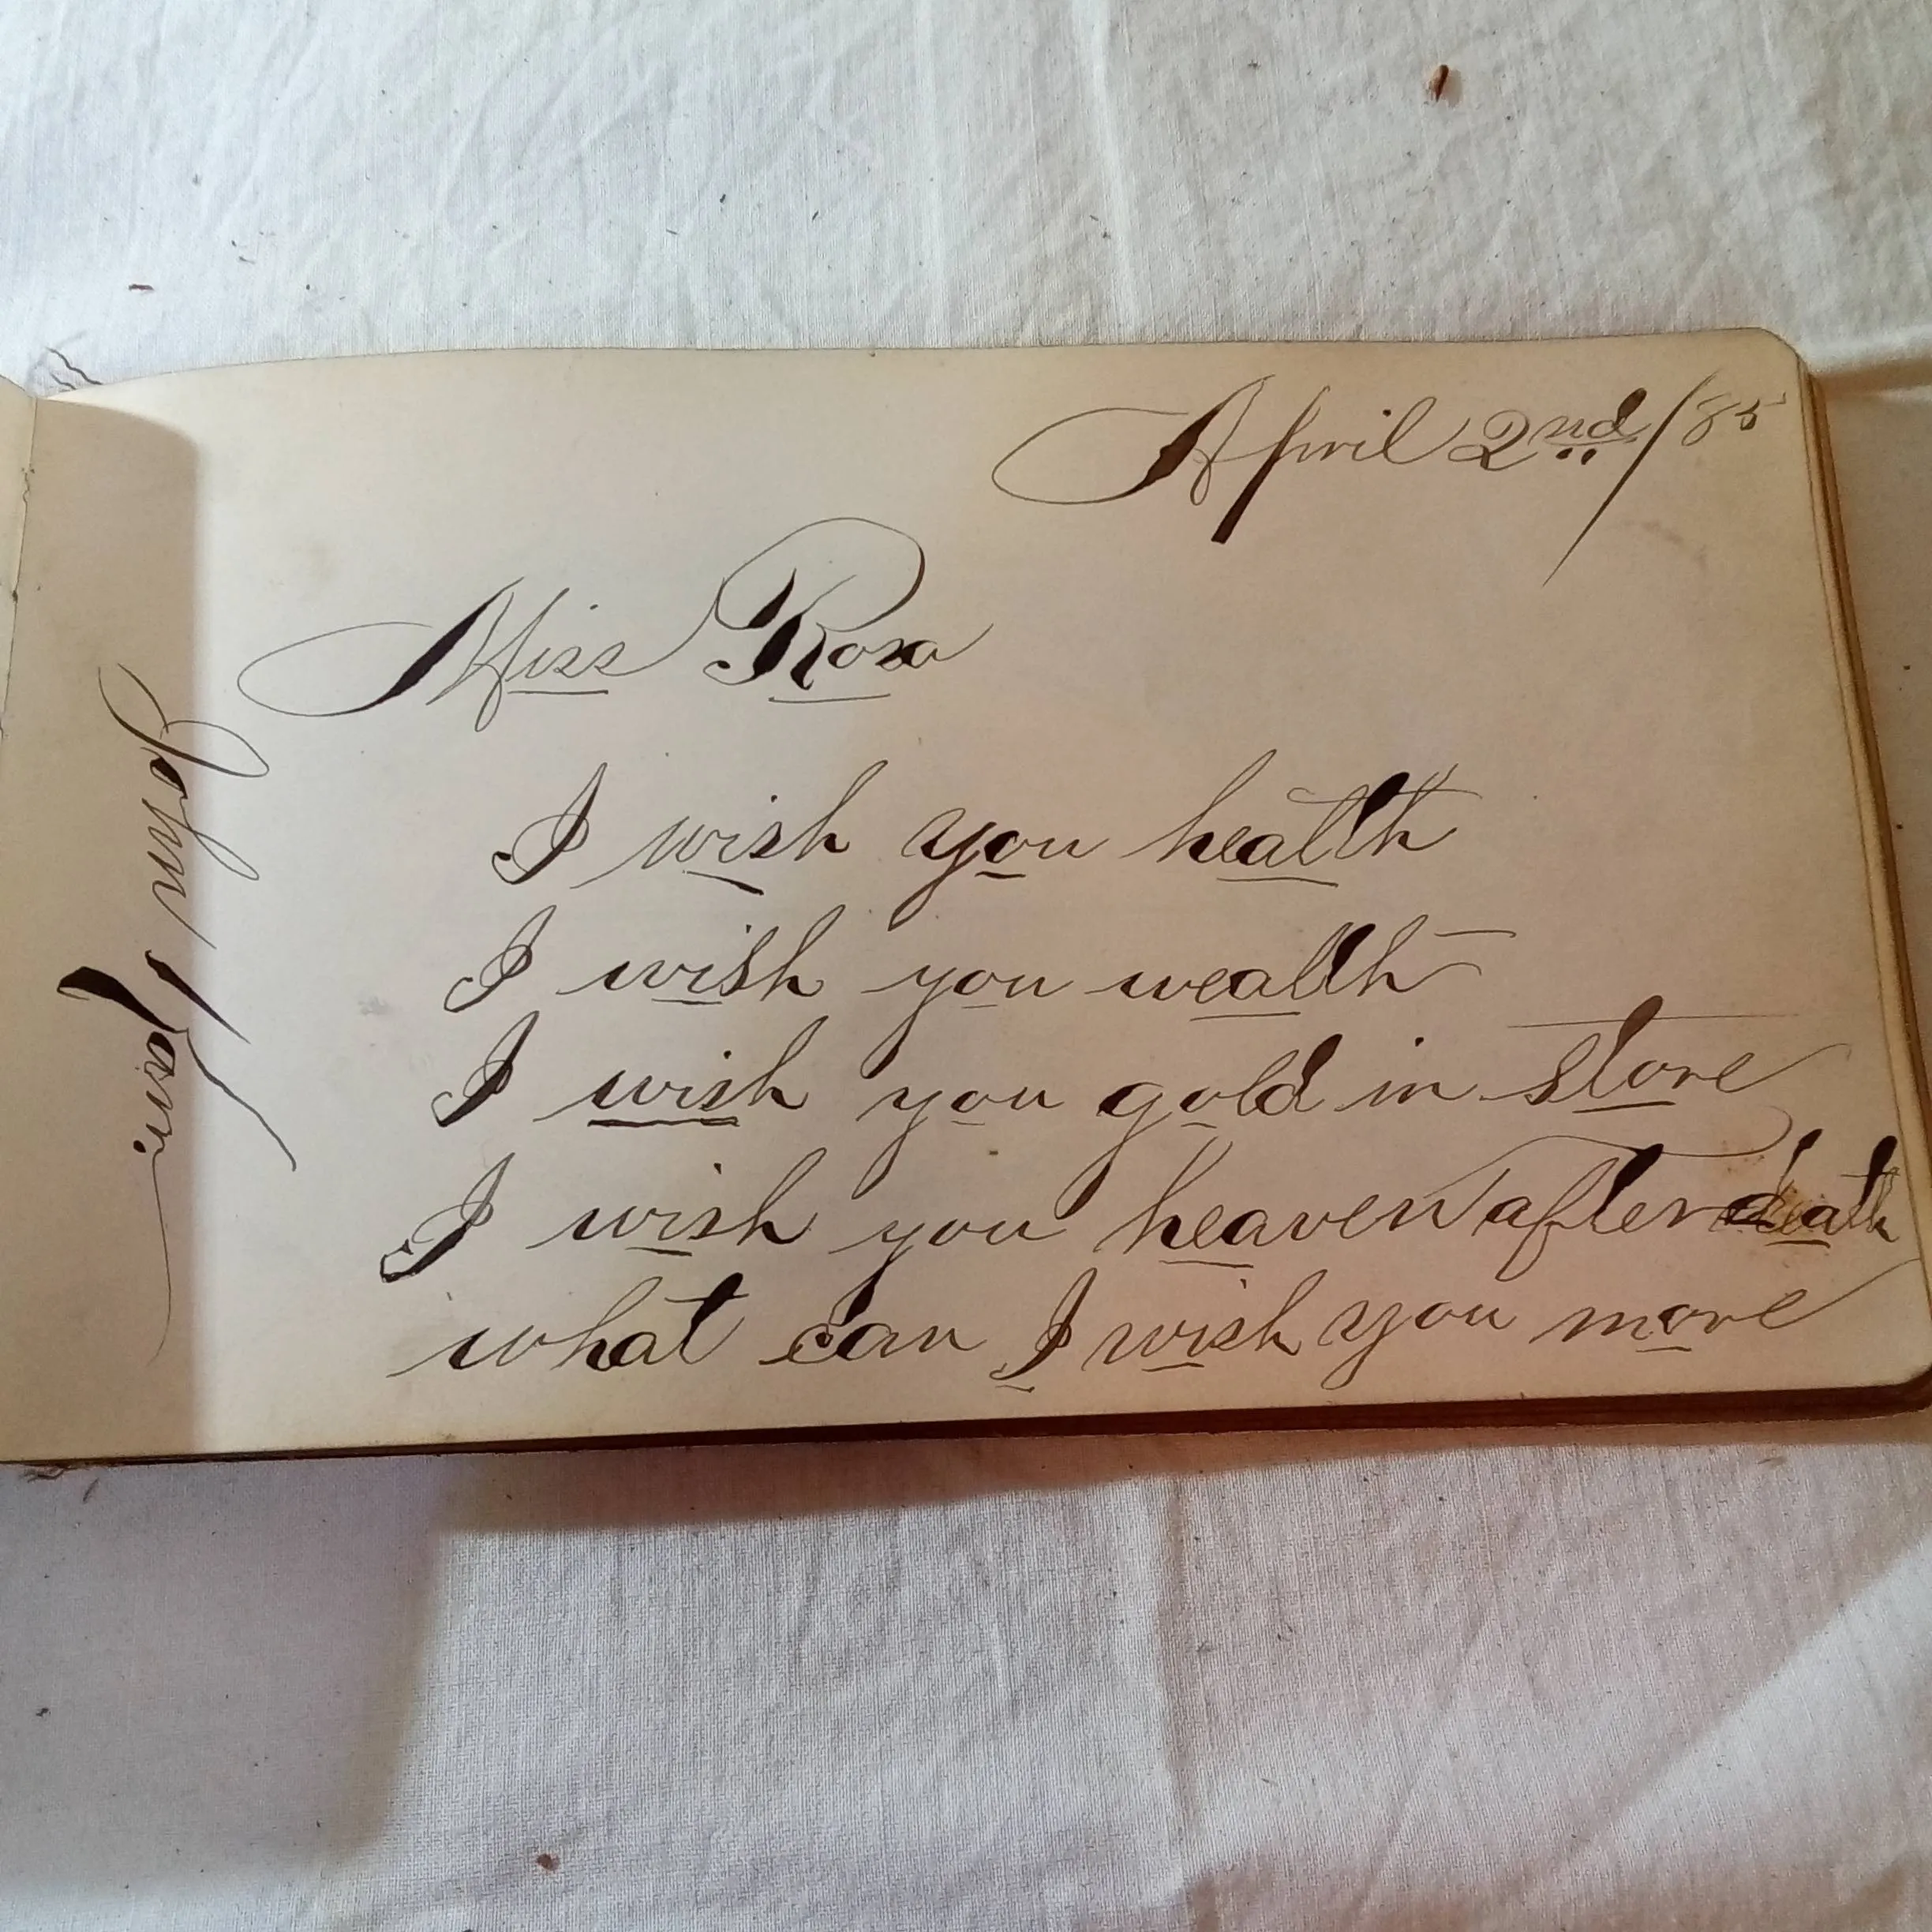 April 2nd/85
Miss Rosa
I wish you health
I wish you wealth
I wish you gold in store
I wish you heaven after death
what can I wish you more
John